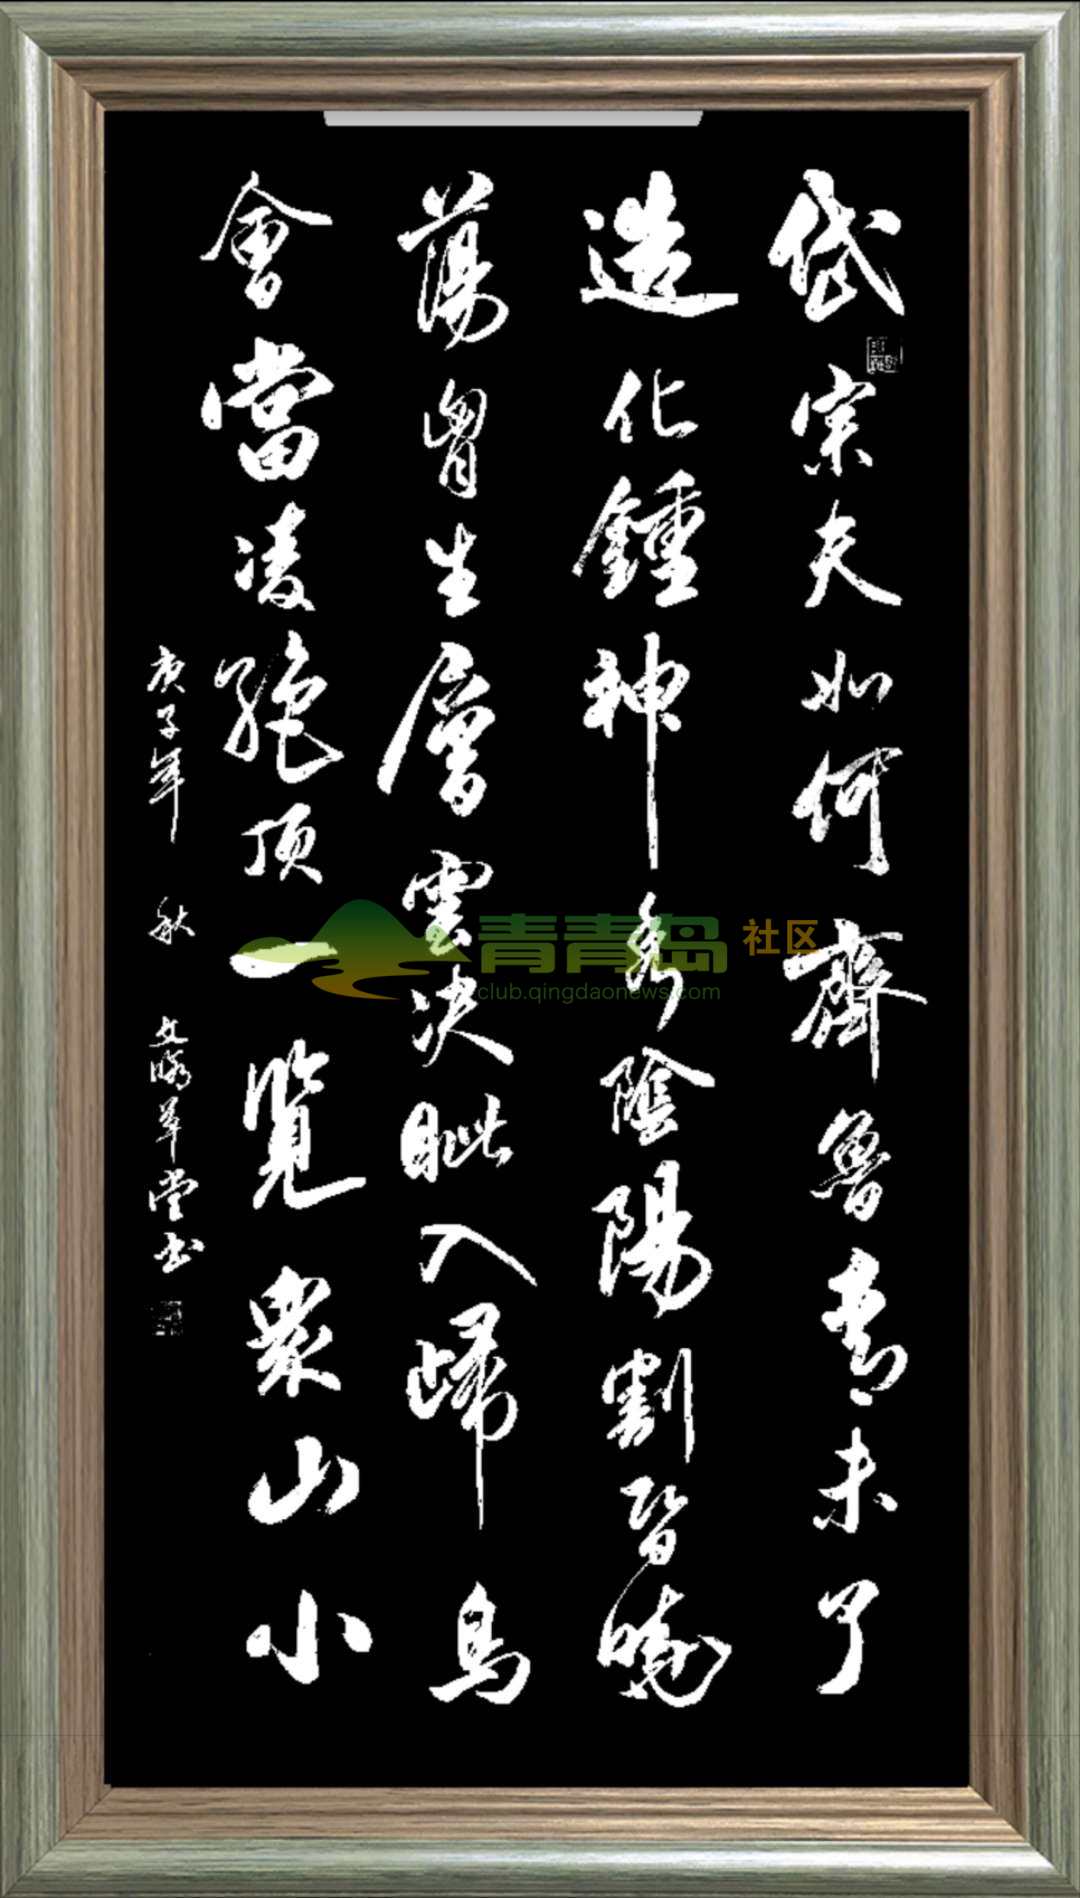 岱宗夫如何齊魯青未了
造化鍾神秀陰陽割昏曉
蕩胷生層雲決眦入歸鳥
會當凌絕頂一覽衆山小
庚子年 秋 文草堂书
青青岛社区
club.qingdaonews.com